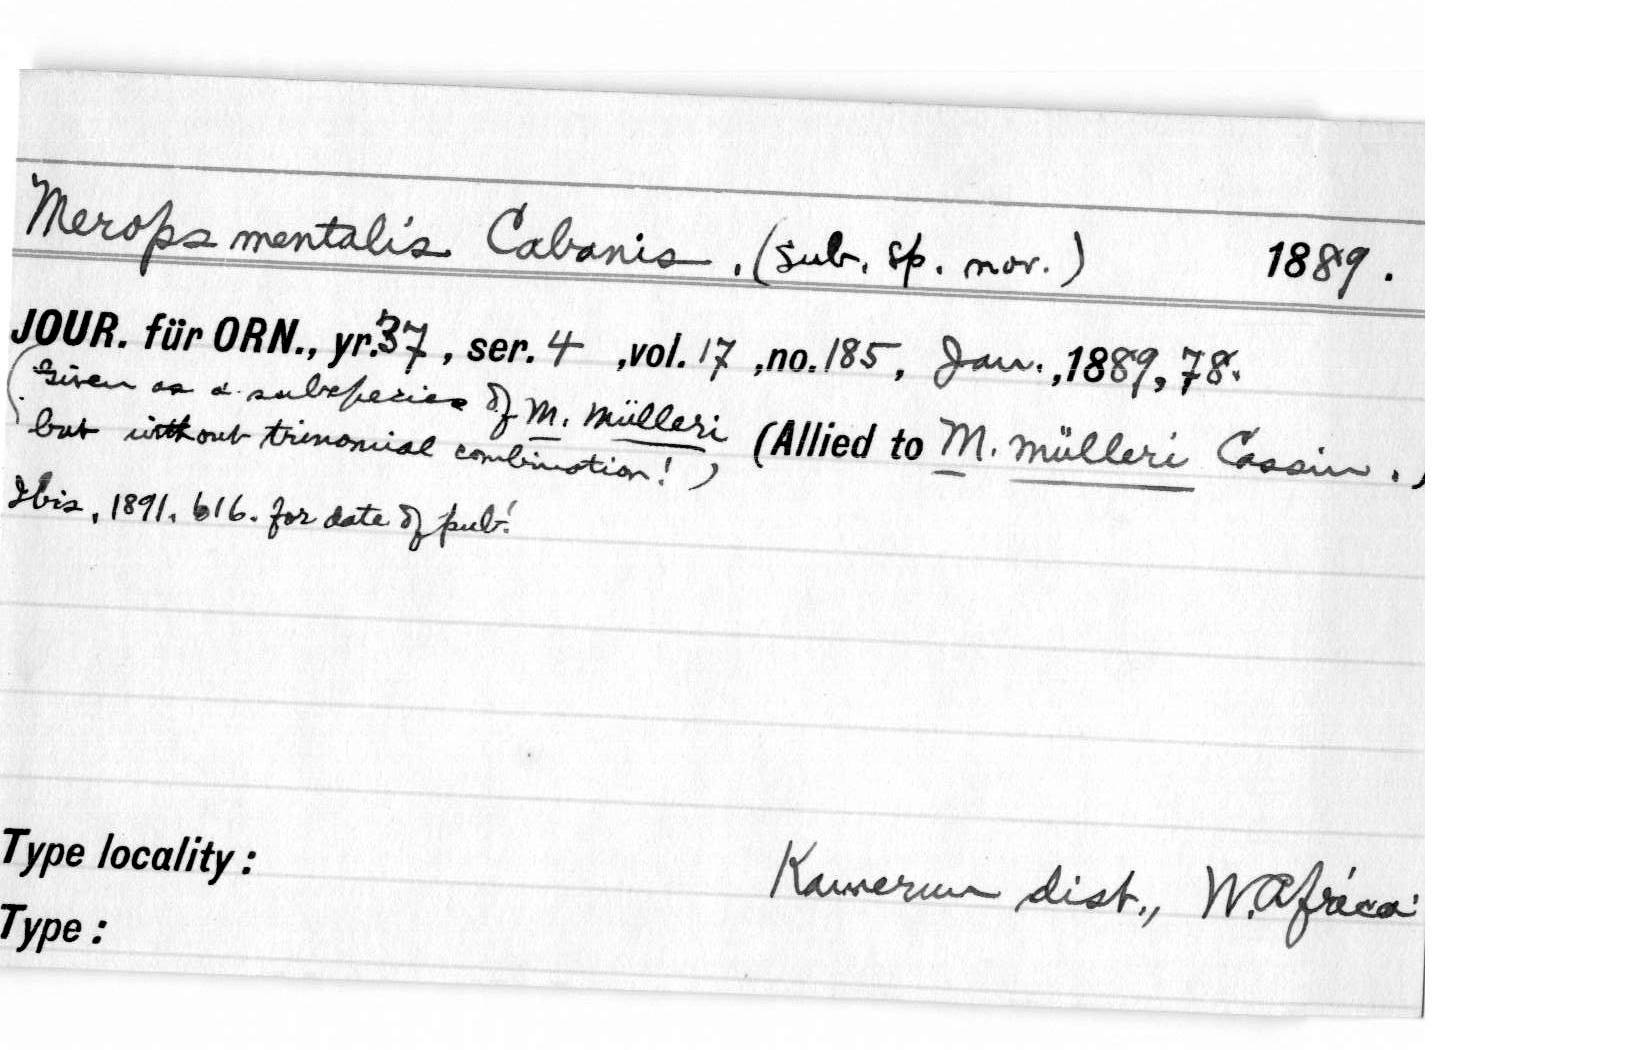 Merops mentalis Cabanis, (sub. sp. nov.) 1889.
JOUR. für ORN., yr. 37, ser. 4, vol. 17, no. 185, Jan., 1889, 78.
(Given as a subspecies of M. mülleri
but without trinomial combination!) (Allied to M. mülleri Cassin.)
Ibis, 1891, 616. for date of pub!
Type locality: Kamerun dist., W. Africa
Type: